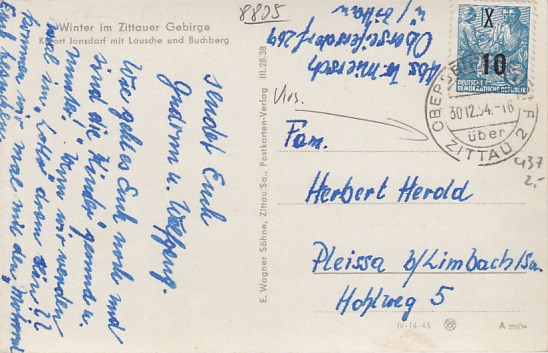 8805
Winter im Zittauer Gebirge
Kurort Jonsdorf mit Lausche und Buchberg
Abs. W.
Oberseifersdorf 269
ü/Zittau
X
10
DEUTSCHE
DEMOKRATISCHE REPUBLIK
30.12.54.-16
über
ZITTAU 2
F
437
2.-
Urs.
III.28.38
E. Wagner Söhne, Zittau/Sa., Postkarten-Verlag
Fam.
Herbert Herold
Pleissa b/Limbach/Sa.
Hohlweg 5
IV-14-45
A
sendet Euch
Gudrun u. Wolfgang.
Wie geht es Euch noch und
sind die Kinder gesund u.
munter. Wenn wir werden
mal im
kommen wir mal mit der
Euch besuchen